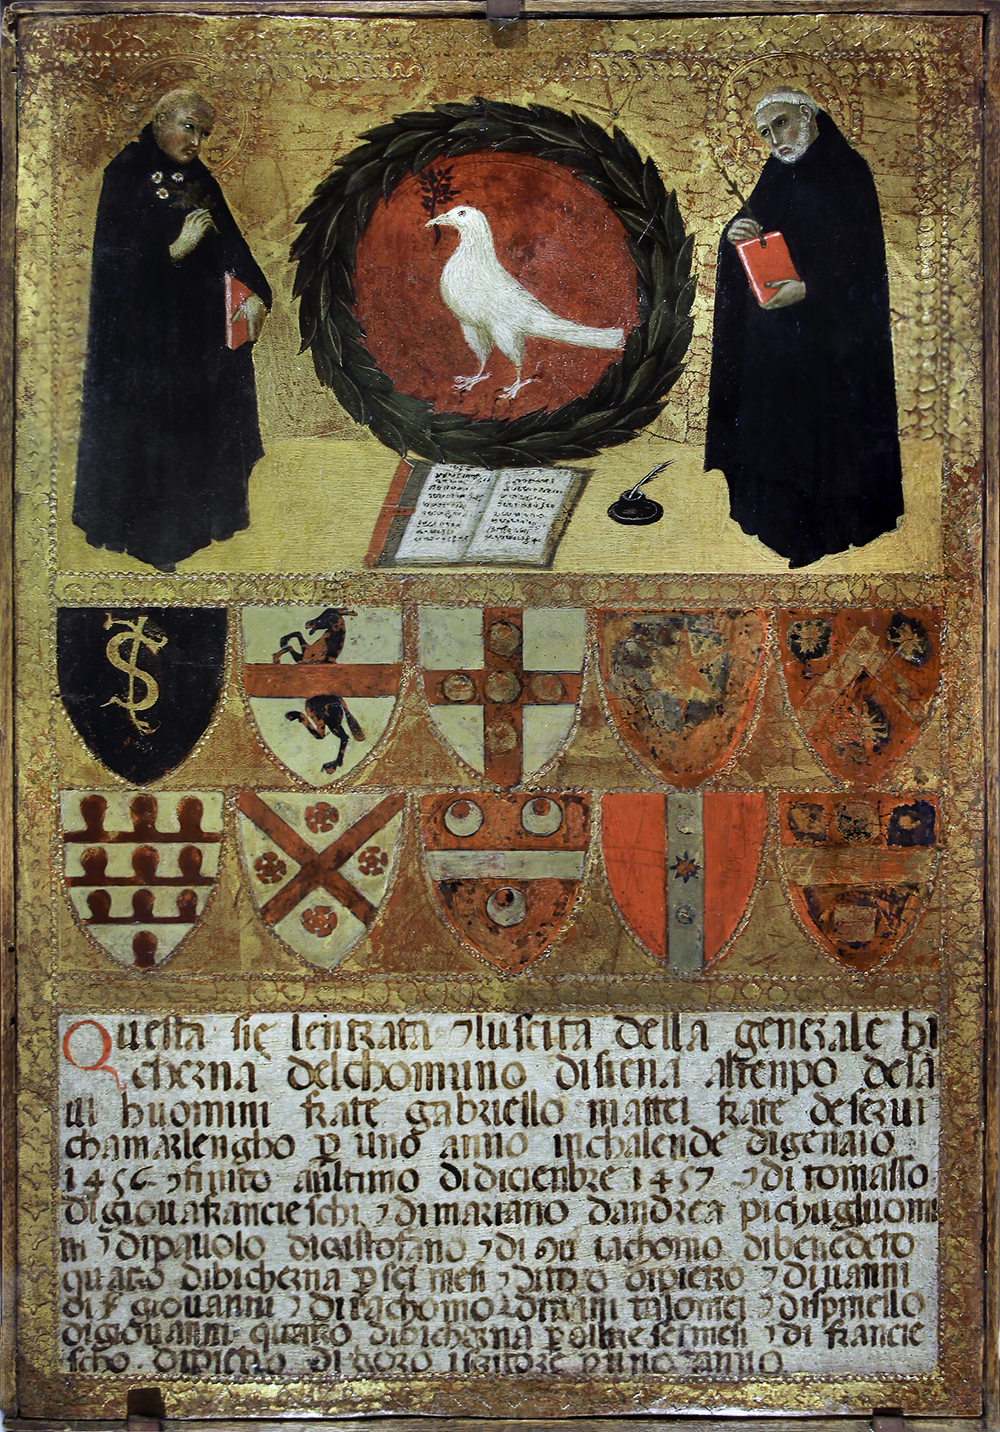 Questa sie lentrata ⁊ luscita della generale bi
cherna delchomuno disiena altenpo desa
vi huomini frate gabriello mattei frate deservi
chamarlengho p uno anno inchalende digenaio
1456 ⁊ finito aultimo didicienbre 1457 ⁊ di tomasso
digiovafrancieschi ⁊ dimariano dandrea pichugluomi
ni ⁊ dipavolo dicristofano ⁊ di iachomo dibenedeto
quatro dibicherna p sei mesi ⁊ di dipiero ⁊ divanni
di giovanni ⁊ di iachomo talomei ⁊ dispinello
digiovanni quatro dibicherna p oltre seimesi ⁊ di francie
scho dipietro di goro iscritore p uno anno